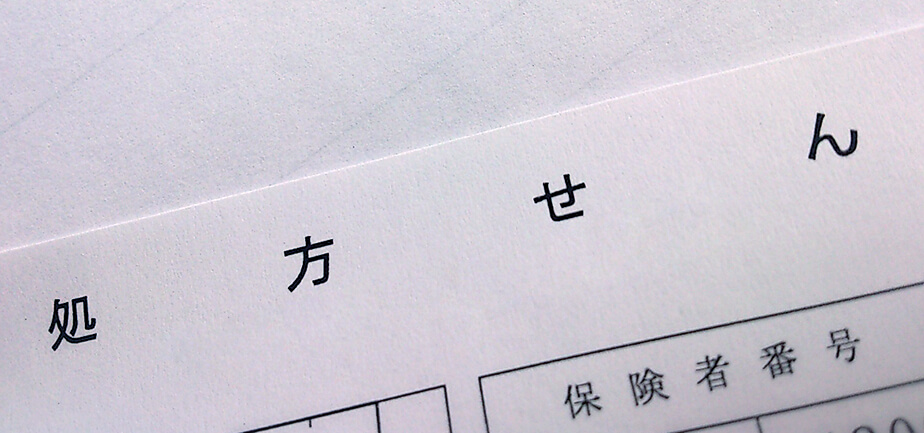 処方せん
保険者番号